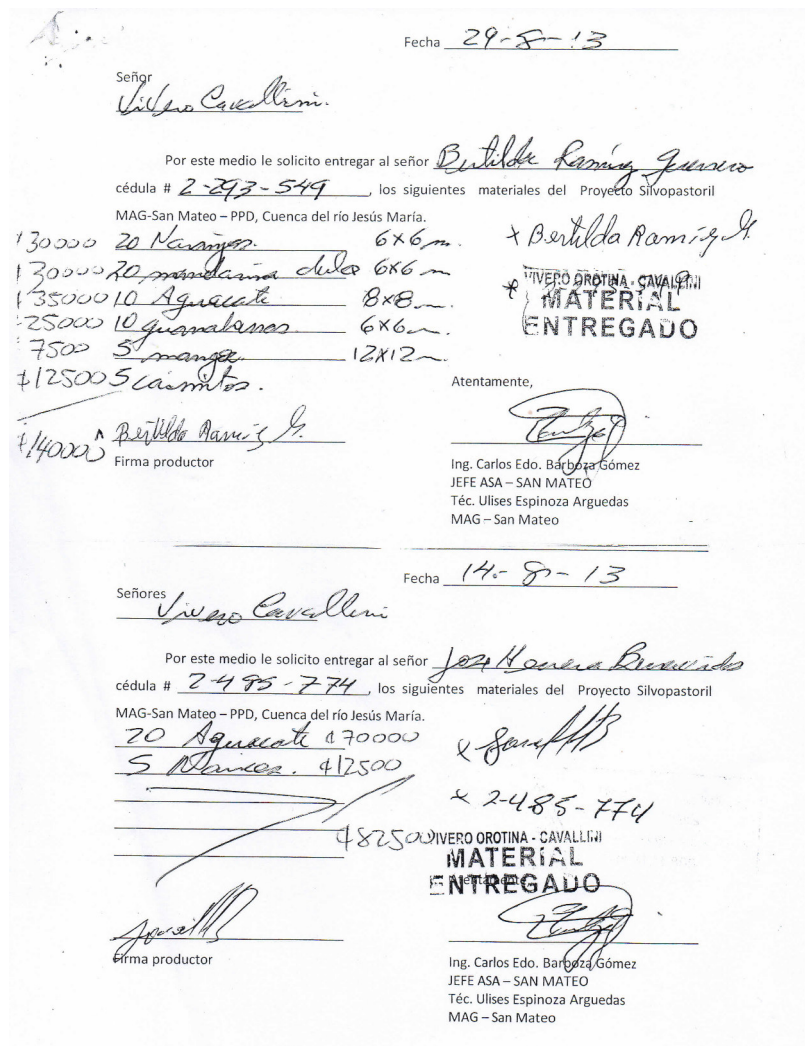 Fecha 29-8-13
Señor
Vivero Cavallini.
Por este medio le solicito entregar al señor Bertilda Ramírez Guerrero
cédula # 2-293-549, los siguientes materiales del Proyecto Silvopastoril
MAG-San Mateo – PPD, Cuenca del río Jesús María.
¢30000 20 Naranjos. 6x6 m.
x Bertilda Ramírez G.
¢30000 20 mandarina dulce 6x6 m
¢35000 10 Aguacate 8x8 m.
25000 10 guanabanos. 6x6 m.
7500 5 mangos 12x12 m.
¢12500 5 caimitos.
VIVERO OROTINA - CAVALLINI
MATERIAL
ENTREGADO
¢140000
Bertilda Ramírez G.
Firma productor
Atentamente,
Ing. Carlos Edo. Barboza Gómez
JEFE ASA – SAN MATEO
Téc. Ulises Espinoza Arguedas
MAG – San Mateo
Fecha 14-8-13
Señores
Vivero Cavallini
Por este medio le solicito entregar al señor Jose Herrera Benavides
cédula # 2-485-774, los siguientes materiales del Proyecto Silvopastoril
MAG-San Mateo – PPD, Cuenca del río Jesús María.
20 Aguacate ¢70000
5 ¢12500
x 2-485-774
¢82500
VIVERO OROTINA - CAVALLINI
MATERIAL
ENTREGADO
Atentamente
Firma productor
Ing. Carlos Edo. Barboza Gómez
JEFE ASA – SAN MATEO
Téc. Ulises Espinoza Arguedas
MAG – San Mateo